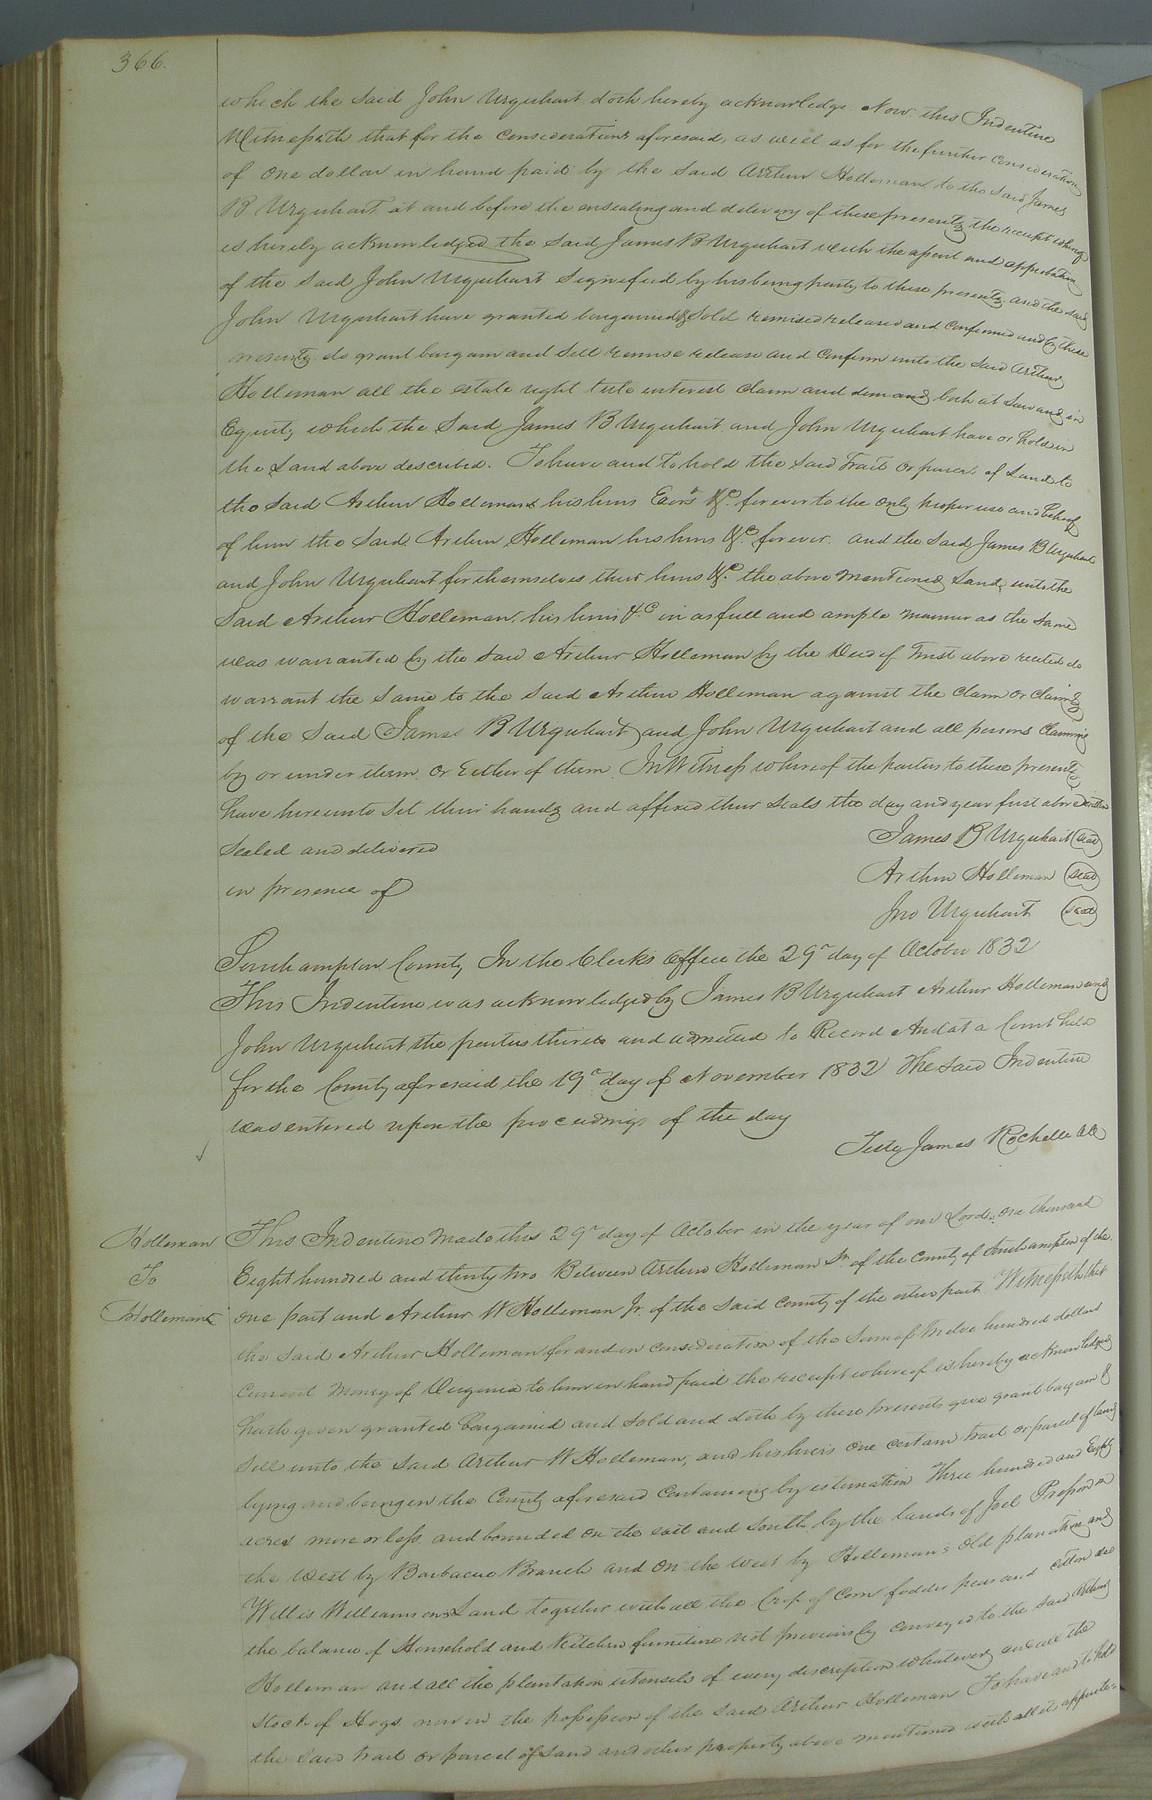 366.
which the said John Urquhart doth hereby acknowledge Now this Indenture
Witnesseth that for the considerations aforesaid, as well as for the further consideration
of one dollar in hand paid by the said Arthur Holleman to the said James
B Urquhart at and before the ensealing and delivery of these presents, the receipt whereof
is hereby acknowledged the said James B Urquhart with the assent and approbation
of the said John Urquhart signified by his being party to these presents, and the said
John Urquhart have granted bargained & sold remised released and confirmed and by these
presents do grant bargain and sell remise release and confirm unto the said Arthur
Holleman all the estate right title interest claim and demand both at Law and in
Equity which the said James B Urquhart and John Urquhart have or hold in
the Land above described. To have and to hold the said Tract or parcel of Land to
the said Arthur Holleman his heirs Exors &c. forever to the only proper use and behoof
of him the said Arthur Holleman his heirs &c. forever. and the said James B Urquhart
and John Urquhart for themselves their heirs &c. the above mentioned Land, unto the
said Arthur Holleman, his heirs &c in as full and ample manner as the same
was warranted by the said Arthur Holleman by the Deed of Trust above recited do
warrant the same to the said Arthur Holleman against the claim or claims
of the said James B Urquhart and John Urquhart and all persons claiming
by or under them or Either of them. In Witness whereof the parties to these presents
have hereunto set their hands and affixed their seals the day and year first above written
Sealed and delivered James B Urquhart (seal)
in presence of Arthur Holleman (seal)
Jno Urquhart (seal)
Southampton County In the Clerk's office the 29th day of October 1832
This Indenture was acknowledged by James B Urquhart Arthur Holleman and
John Urquhart the parties thereto and admitted to Record And at a Court held
for the County aforesaid the 19th day of November 1832 The said Indenture
was entered upon the proceedings of the day
Teste James Rochelle
Holleman
To
Holleman
This Indenture made this 29th day of October in the year of our Lord, one thousand
Eight hundred and thirty two Between Arthur Holleman Sr. of the County of Southampton of the
one part and Arthur W Holleman Jr. of the said county of the other part Witnesseth that
the said Arthur Holleman for and in consideration of the sum of twelve hundred dollars
Current Money of Virginia to him in hand paid the receipt whereof is hereby acknowledged
hath given granted bargained and sold and doth by these presents give grant bargain &
sell unto the said Arthur W Holleman, and his heirs one certain tract or parcel of land
lying and being in the County aforesaid containing by estimation Three hundred and Eighty
acres more or less and bounded on the east and South by the lands of Joel
the West by Barbacue Branch and on the West by Holleman's Old plantation and
Willis Williamsons Land together with all the Crop of Corn fodder peas and cotton
the balance of Household and Kitchen furniture not previously conveyed to the said Arthur
Holleman and all the plantation utensels of every description whatever, and all the
stock of Hogs now in the possession of the said Arthur Holleman To have and to hold
the said tract or parcel of Land and other property above mentioned with all it appurte-